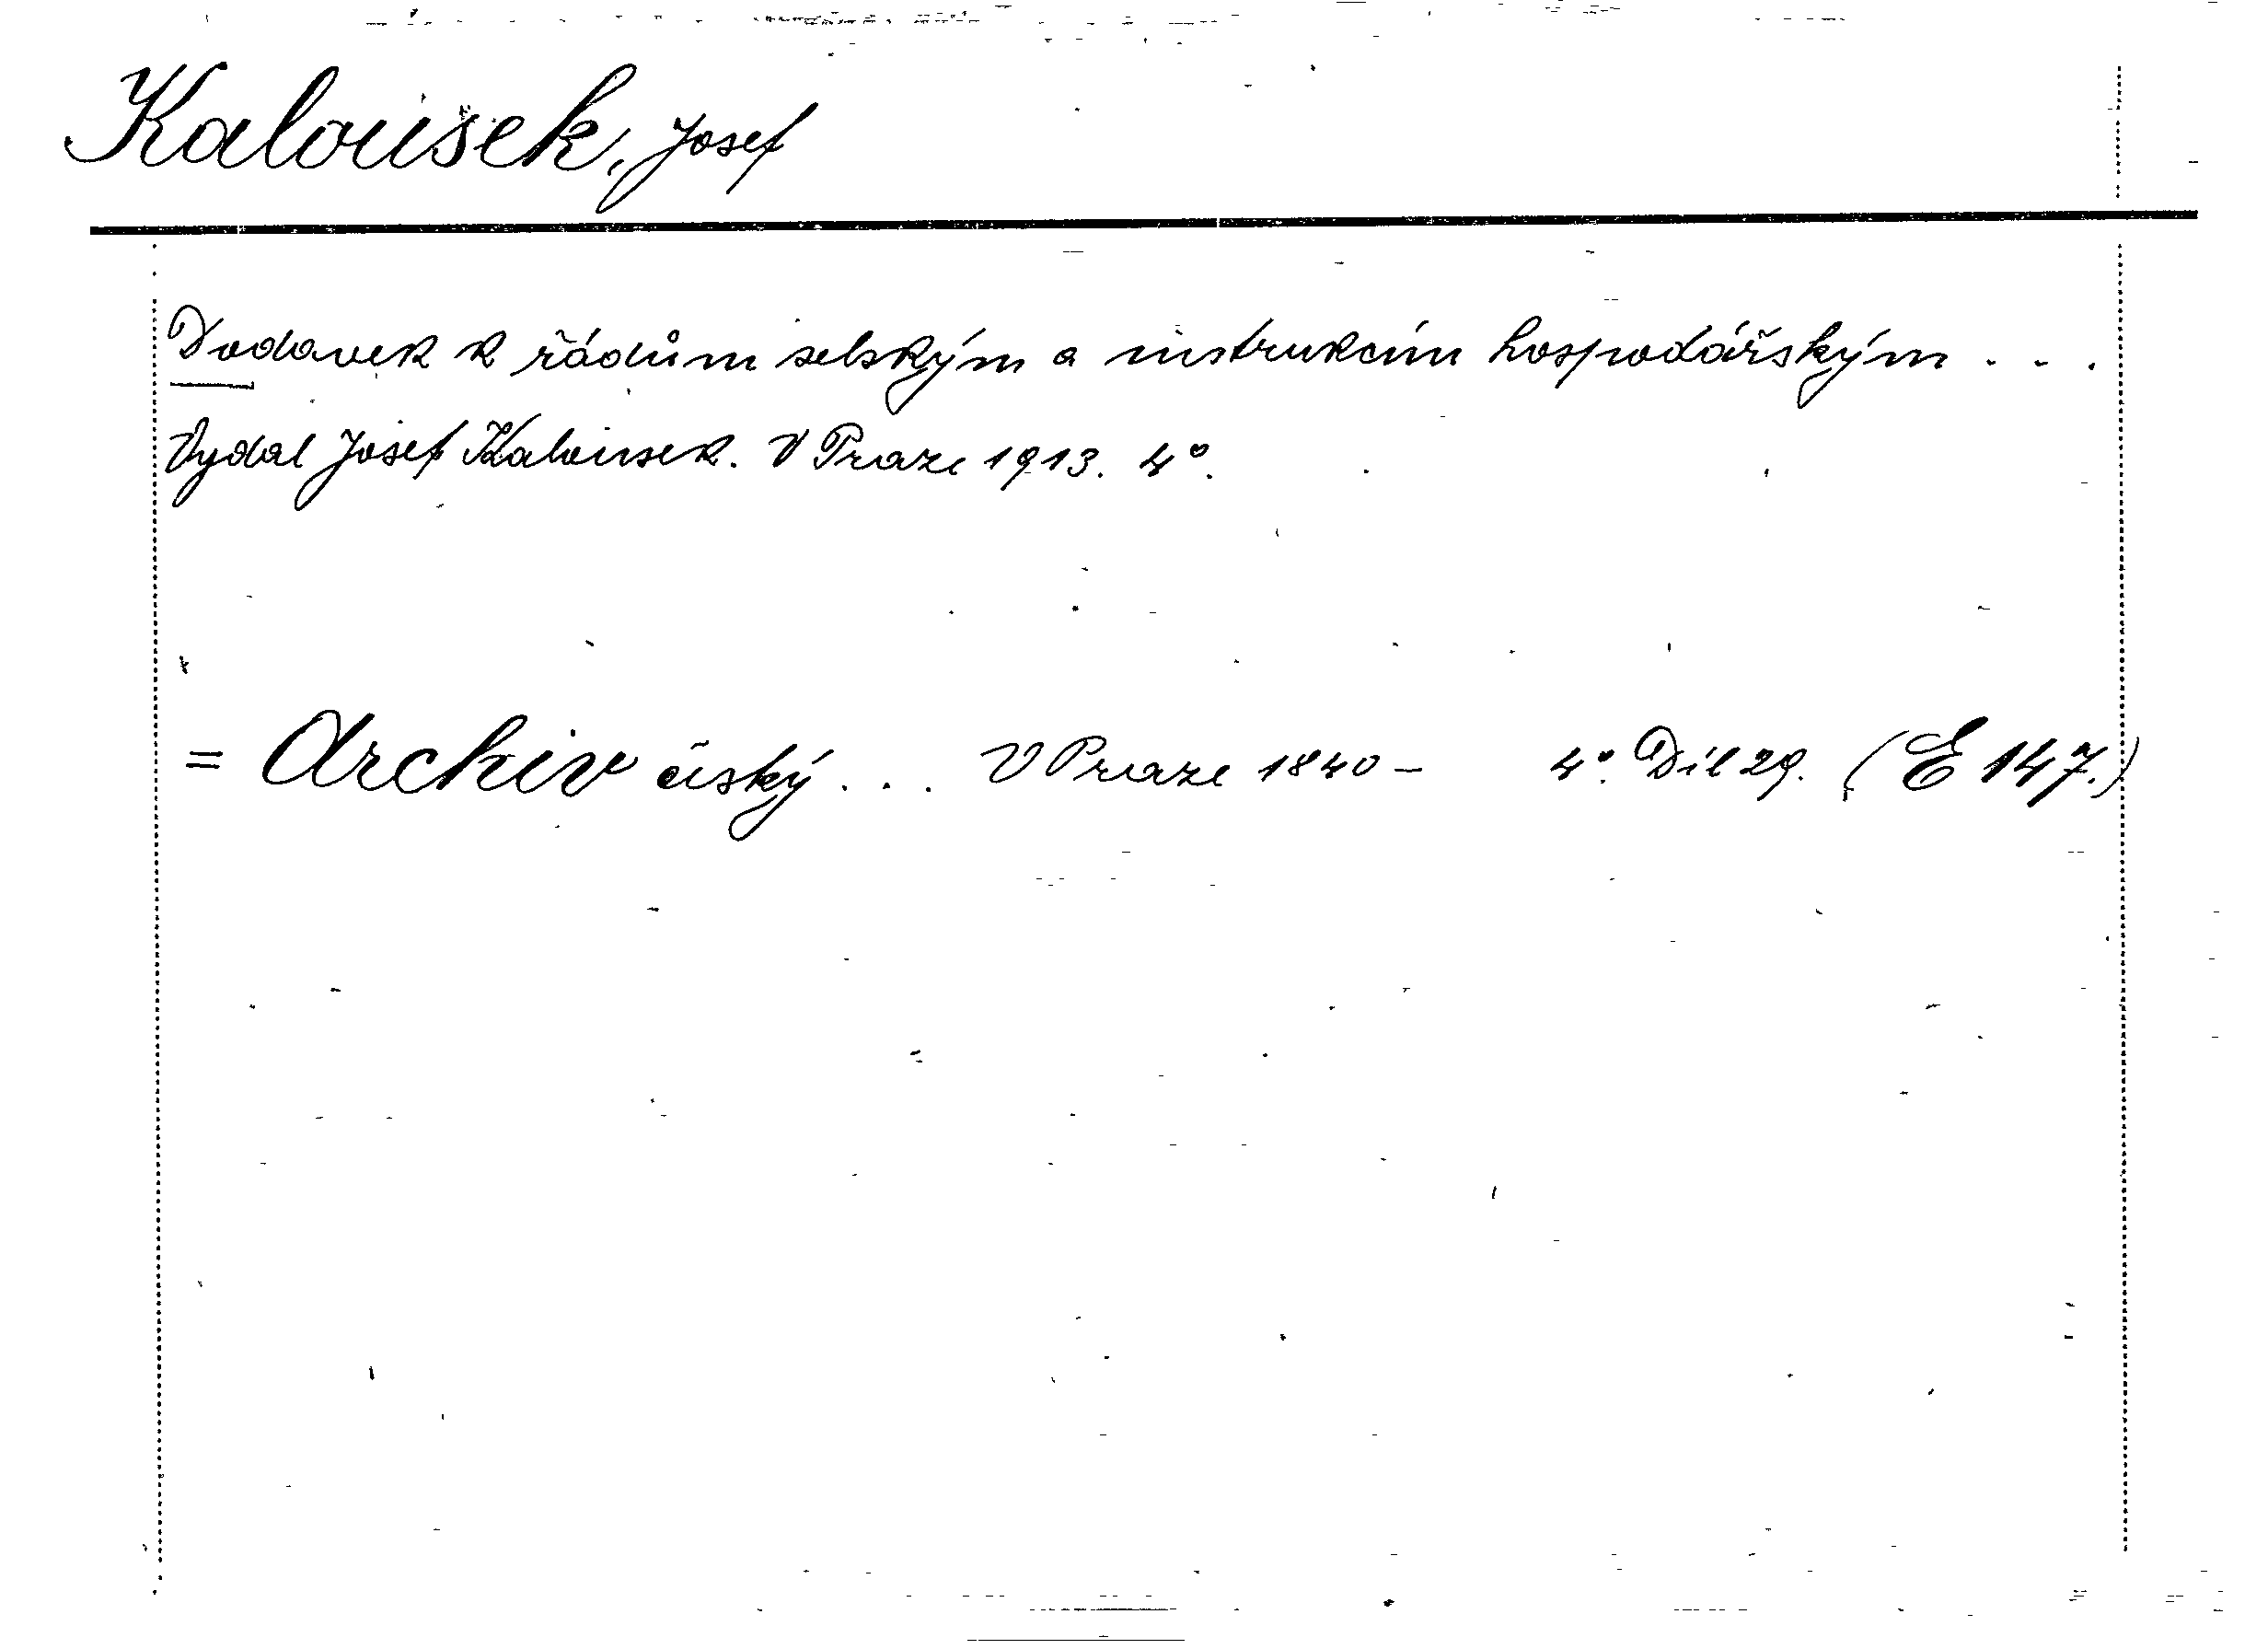 Kalousek, Josef
Dodavek k řádům selským a instrukcím hospodářským . . .
Vydal Josef Kalousek. V Praze 1913. 4°.
= Archiv český . . . V Praze 1840 – 4°. Díl 29. (E 147.)